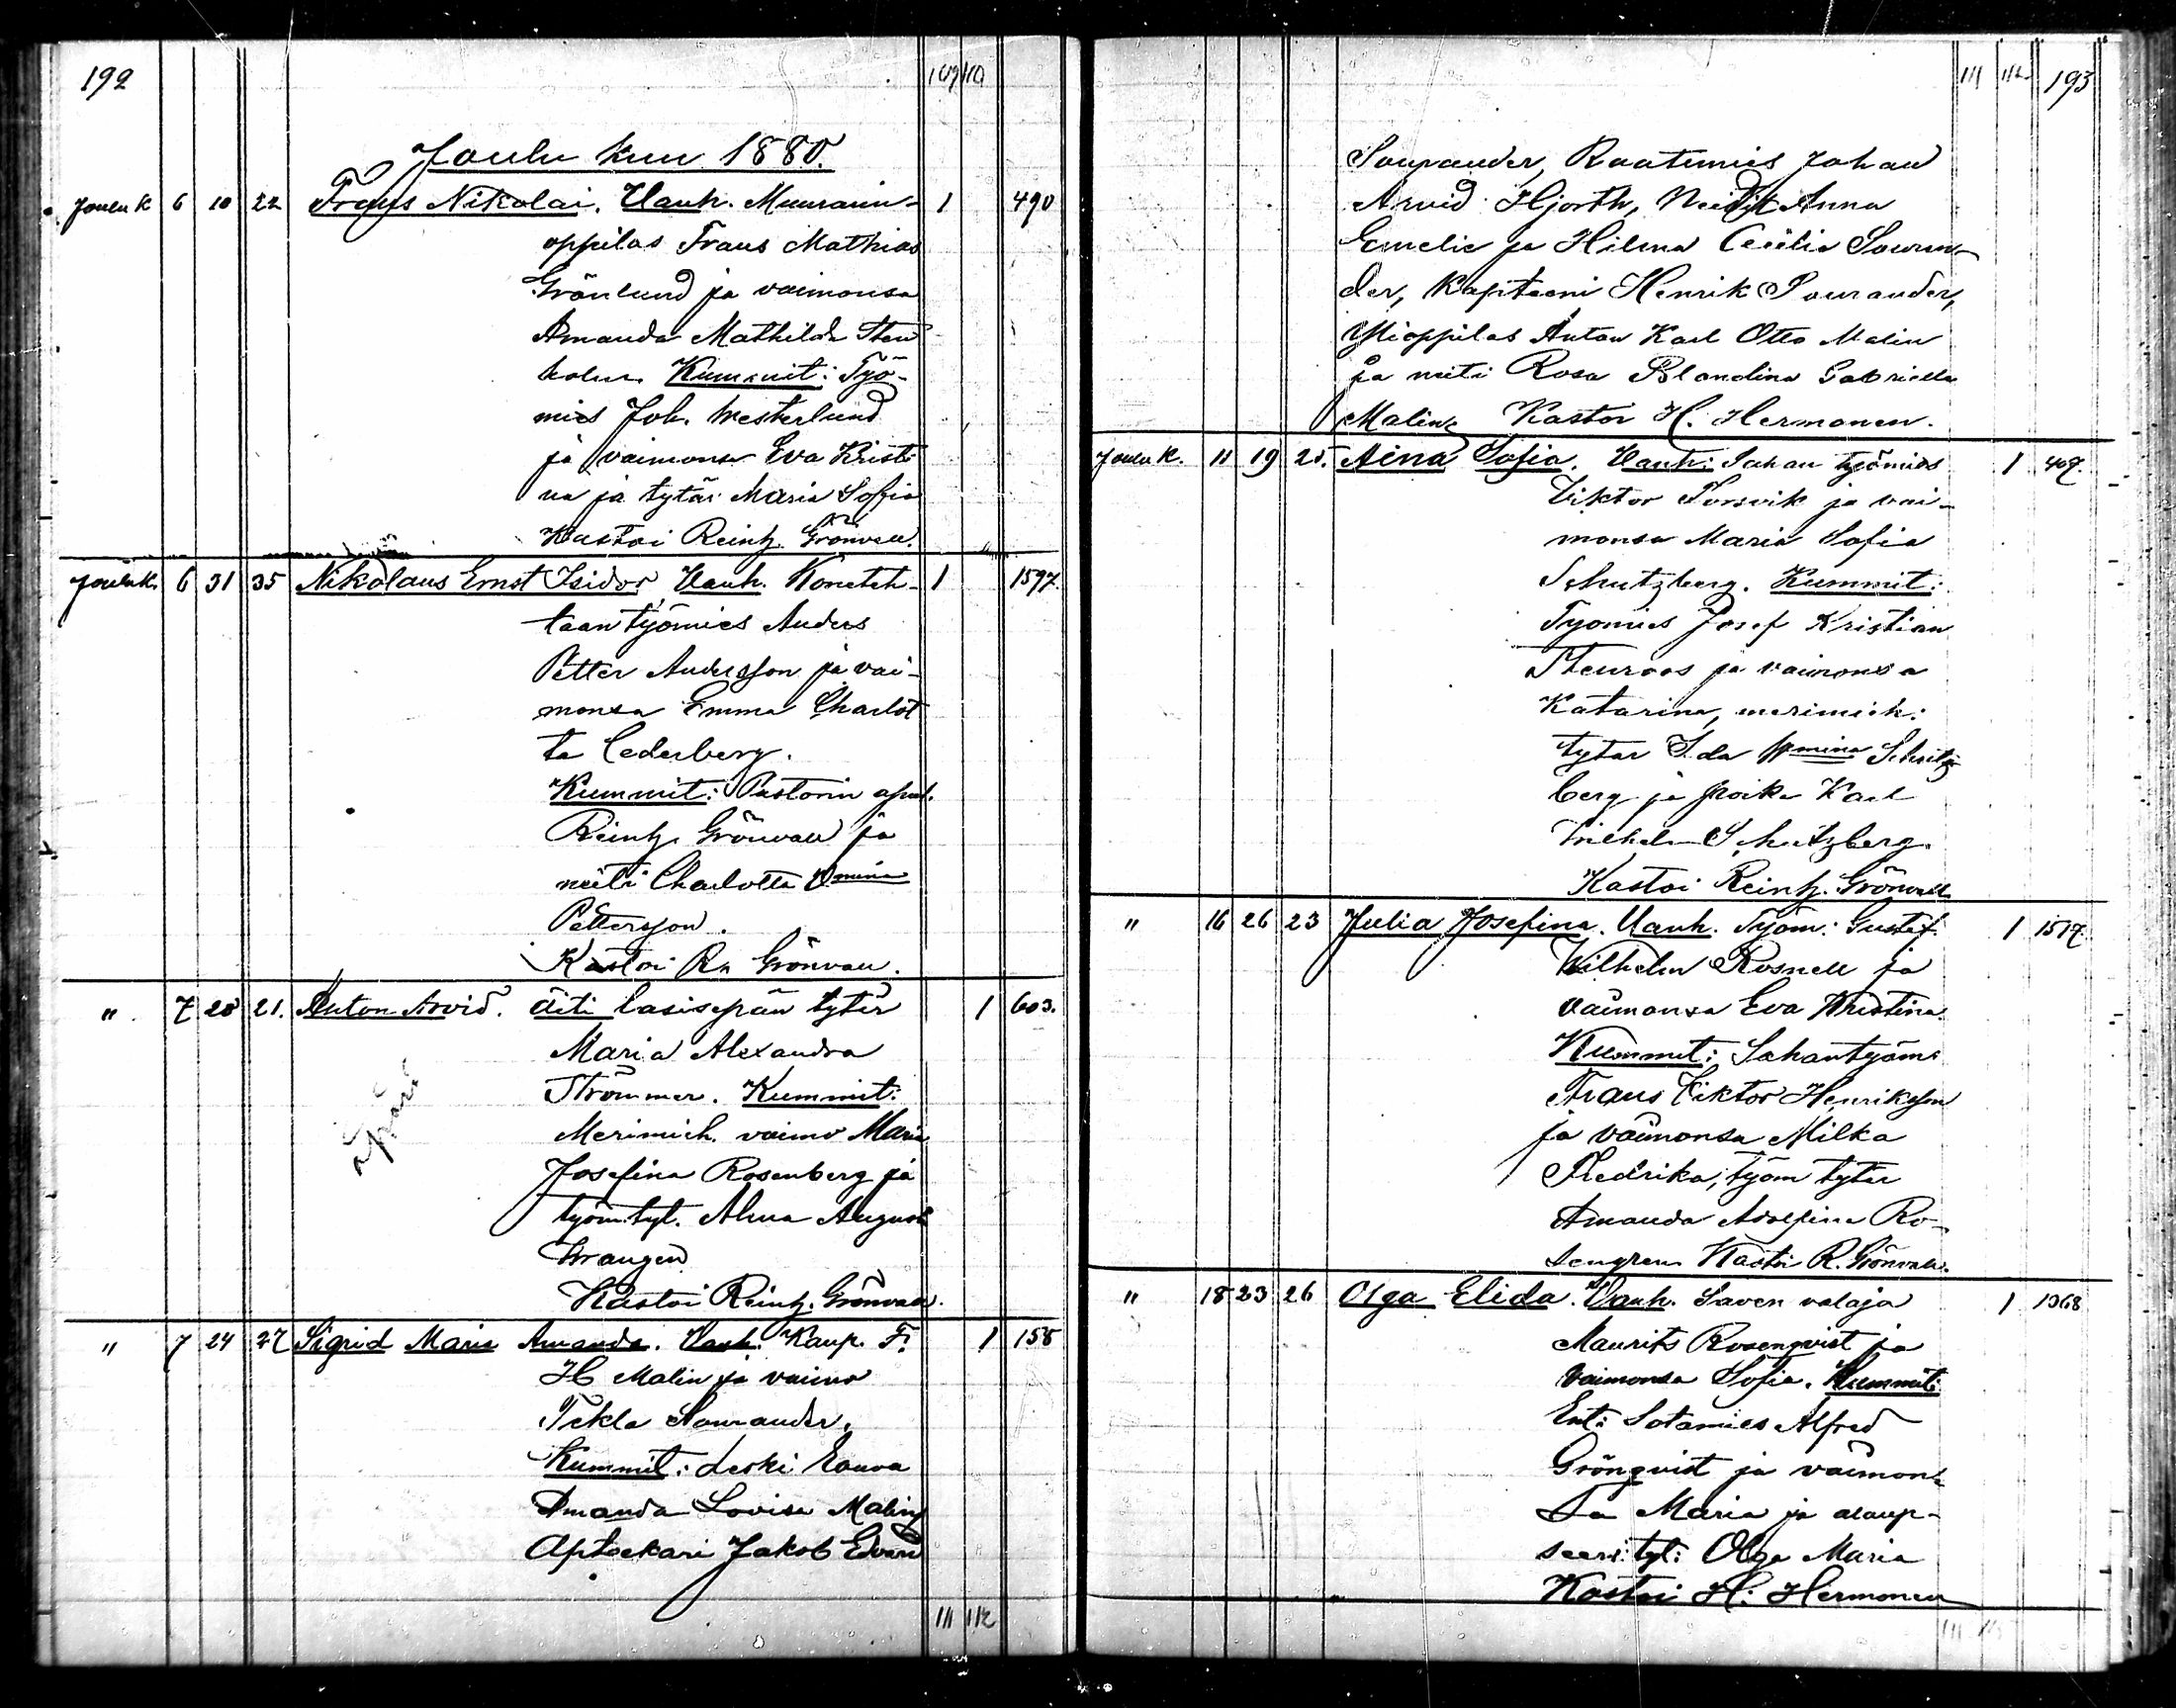 192
109 110
Joulu kuu 1880.
Joulu k 6 10 22 Frans Nikolai. Vanh. Muurarin- 1 490
oppilas Frans Mathias
Grönlund ja vaimonsa
Amanda Mathilda Sten
holm. Kummit: Työ-
mies Joh. Westerlund
ja vaimonsa Eva Kristi
na ja tytär Maria Sofia
Kastoi Reinh. Grönvall.
Joulu k. 6 31 35 Nikolaus Ernst Isidor, Vanh. Koneteh- 1 1597.
taan työmies Anders
Petter Andersson ja vai-
monsa Emma Charlot
ta Cederberg.
Kummit: Pastorin apul.
Reinh. Grönvall ja
neiti Charlotta Vmina
Pettersson.
Kastoi Rh Grönvall.
" 7 20 21. Anton Arvid. Äiti lasisepän tytär 1 603.
Maria Alexandra
Strömmer. Kummit:
Äpärä
Merimieh. vaimo Maria
Josefina Rosenberg ja
työm. tyt. Alma Augusta
Wrangen
Kastoi Reinh. Grönvall.
" 7 24 27 Sigrid Maria Amanda. Vanh. Kaup. F. 1 158
H Malin ja vaimo
Tekla Sourander.
Kummit: Leski Rouva
Amanda Lovisa Malin,
Apteekari Jakob Edvard
111 112
111 112 193
Sourander, Raatimies Johan
Arvid Hjorth, Neidit Anna
Emelie ja Hilma Cecilia Souran-
der, Kapteeni Henrik Sourander,
Ylioppilas Anton Karl Otto Malin
ja neiti Rosa Blandina Gabriella
Malin. Kastoi H. Hermonen.
Joulu k. 11 19 21. Aina Sofia. Vanh: Sahan työmies 1 407.
Viktor Forsvik ja vai-
monsa Maria Sofia
Schutzberg. Kummit:
Työmies Josef Kristian
Stenroos ja vaimonsa
Katarina, merimieh:
tytär Ida Wmina Schutz
berg ja poika Karl
Vilhelm Schutzberg.
Kastoi Reinh. Grönvall
" 16 26 23 Julia Josefina. Vanh. Työm: Gustaf 1 1517.
Wilhelm Rosnell ja
vaimonsa Eva Kristina.
Kummit: Sahantyöms
Frans Viktor Henriksson
ja vaimonsa Milka
Fredrika, työm tytär
Amanda Adolfina Ro-
sengren Kastoi R. Grönvall.
" 18 23 26 Olga Elida. Vanh. Saven valaja 1 1368
Maurits Rosenqvist ja
vaimonsa Sofia. Kummit:
Ent: Sotamies Alfred
Grönqvist ja vaimon
sa Maria ja alaup-
seeri: tyt: Olga Maria
Kastoi H: Hermonen